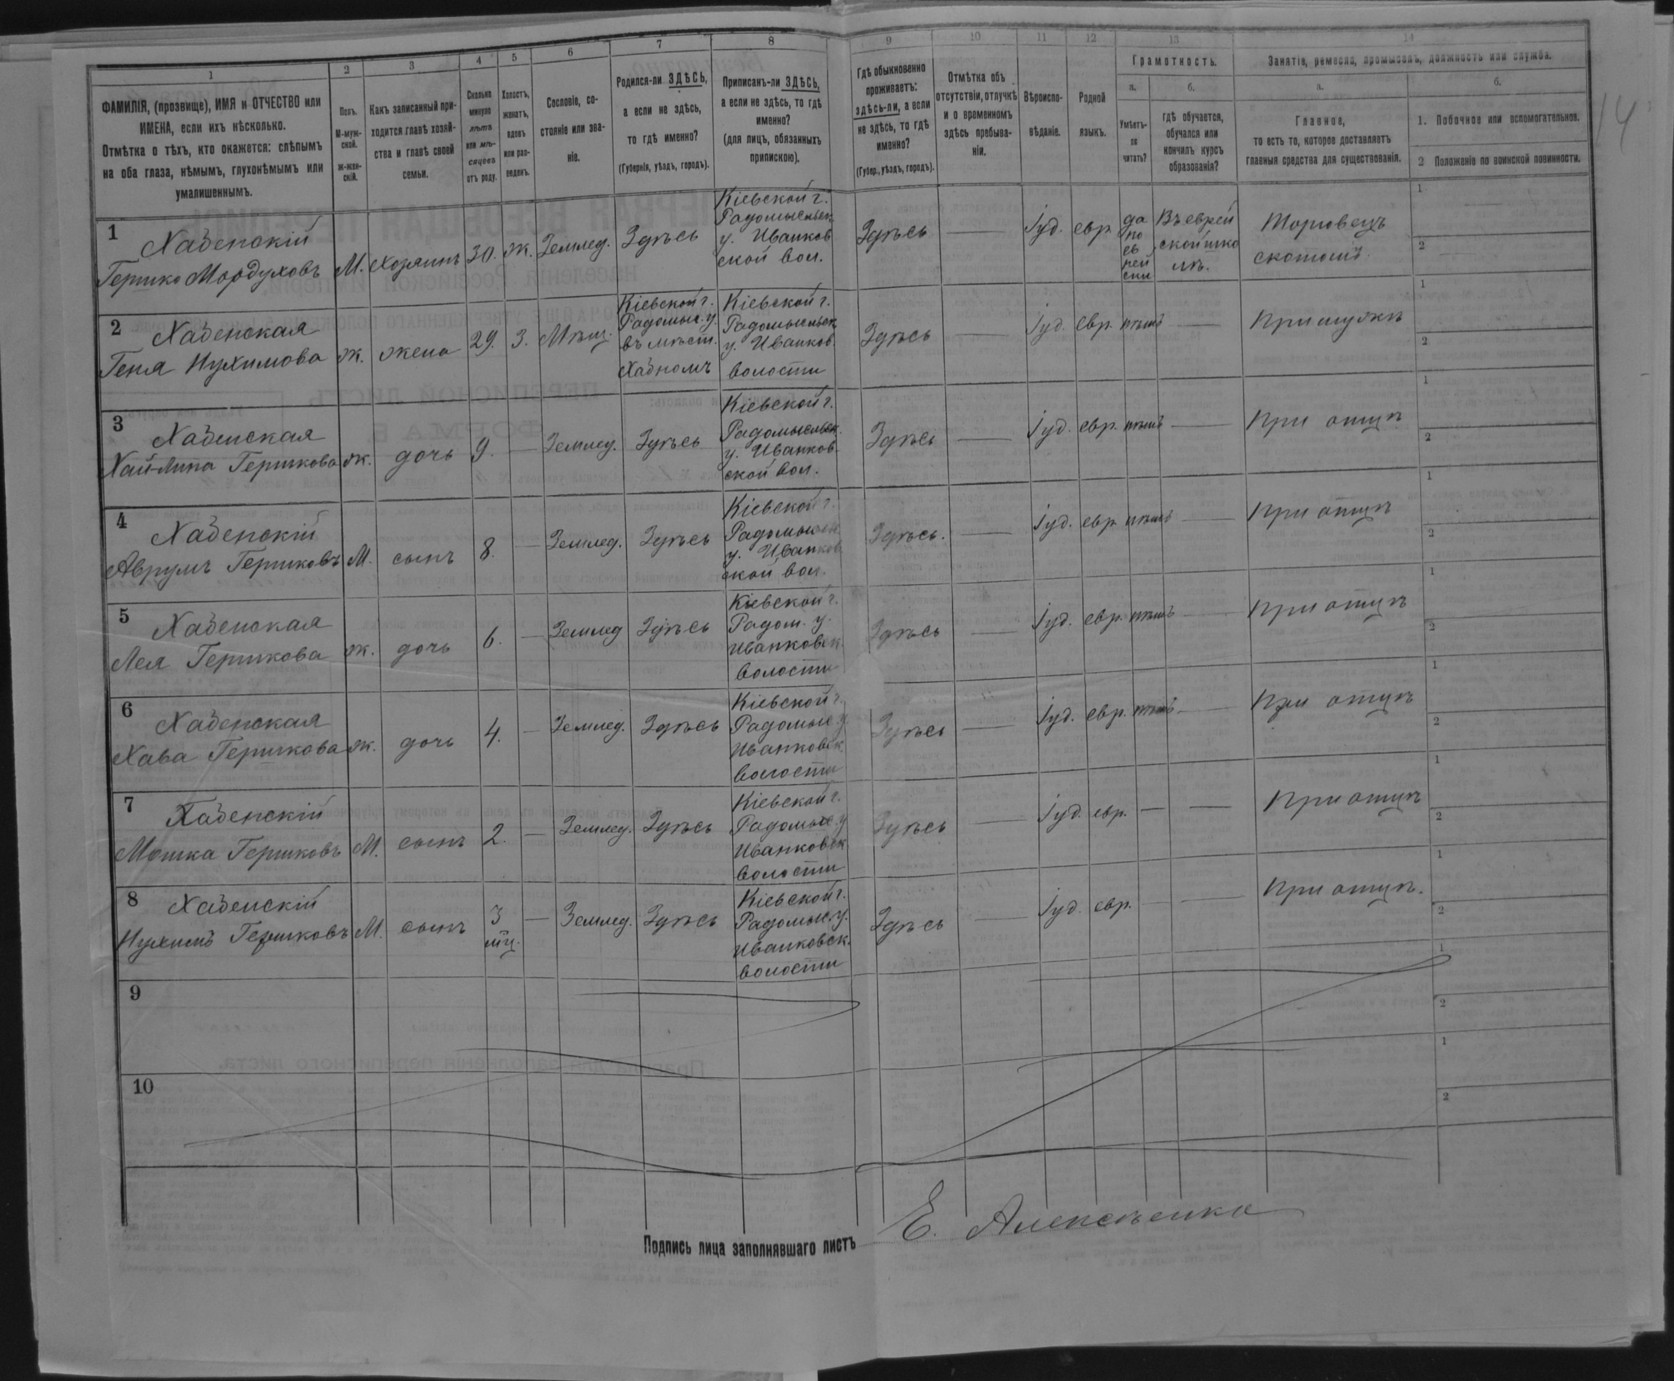 1 2 3 4 5 6 7 8 9 10 11 12 13 14
ФАМИЛІЯ, (прозвище), ИМЯ и ОТЧЕСТВО или
ИМЕНА, если ихъ нѣсколько.
Отмѣтка о тѣхъ, кто окажется: слѣпымъ
на оба глаза, нѣмымъ, глухонѣмымъ или
умалишеннымъ.
Полъ.
М-муж-
ской.
ж-жен-
скій.
Какъ записанный при-
ходится главѣ хозяй-
ства и главѣ своей
семьи.
Сколько
минуло
лѣтъ
или мѣ-
сяцевъ
отъ роду.
Холостъ,
женатъ,
вдовъ
или раз-
веденъ.
Сословіе, со-
стояніе или зва-
ніе.
Родился-ли ЗДѢСЬ,
а если не здѣсь,
то гдѣ именно?
(Губернія, уѣздъ, городъ).
Приписанъ-ли ЗДѢСЬ,
а если не здѣсь, то гдѣ
именно?
(для лицъ, обязанныхъ
припискою).
Гдѣ обыкновенно
проживаетъ:
здѣсь-ли, а если
не здѣсь, то гдѣ
именно?
(Губер., уѣздъ, городъ).
Отмѣтка объ
отсутствіи, отлучкѣ
и о временномъ
здѣсь пребыва-
ніи.
Вѣроиспо-
вѣданіе.
Родной
языкъ.
Грамотность.
а.
Умѣетъ-
ли
читать?
б.
гдѣ обучается,
обучался или
кончилъ курсъ
образованія?
Занятіе, ремесло, промыселъ, должность или служба.
а.
Главное,
то есть то, которое доставляетъ
главныя средства для существованія.
б.
1. Побочное или вспомогательное.
2 Положеніе по воинской повинности.
14
1 Хабенскій
Гершко Мордуховъ М. Хозяинъ 30. Ж. Землед. Здѣсь
Кіевской г.
Радомысльск
у. Иванков
ской вол.
Здѣсь — Іуд. евр
да
по
ев
рей
ски
Въ еврей
ской шко
лѣ.
Торговецъ
скотомъ
1
2
2 Хабенская
Геня Нухимова ж. жена 29. З. Мѣщ.
Кіевской г.
Радомыс. у
въ мѣст.
Хабномъ
Кіевской г.
Радомысльск
у. Иванков.
волости
Здѣсь — Іуд. Евр. нѣтъ — При мужѣ
1
2
3 Хабенская
Хай Гершкова ж. дочь 9. — Землед. Здѣсь
Кіевской г.
Радомысльск.
у. Иванков
ской вол.
Здѣсь — Іуд. евр. нѣтъ — При отцѣ
1
2
4 Хабенскій
Аврумъ Гершковъ М. сынъ 8. — Землед. Здѣсь
Кіевской г.
Радомысльск.
у. Иванков
ской вол.
Здѣсь. — Іуд. евр нѣтъ — При отцѣ
1
2
5 Хабенская
Лея Гершкова ж. дочь 6. — Землед Здѣсь
Кіевской г.
Радом. у.
Иванковск.
волости
Здѣсь — Іуд. евр. нѣтъ — При отцѣ
1
2
6 Хабенская
Хава Гершкова ж. дочь 4. — Землед. Здѣсь
Кіевской г.
Радомыс. у
Иванковск
волости
Здѣсь — Іуд. евр. нѣтъ — При отцѣ
1
2
7 Хабенскій
Мошка Гершковъ М. сынъ 2. — Землед. Здѣсь
Кіевской г.
Радомыс. у
Иванковск
волости
Здѣсь — Іуд. евр. — — При отцѣ
1
2
8 Хабенскій
Нухимъ Гершковъ М. сынъ 3 — Землед. Здѣсь
мц.
Кіевской г.
Радомыс. у.
Иванковск.
волости
Здѣсь — Іуд. евр. — — При отцѣ.
1
2
9
1
2
10
1
2
Подпись лица заполнявшаго листъ Е. Алексѣенко